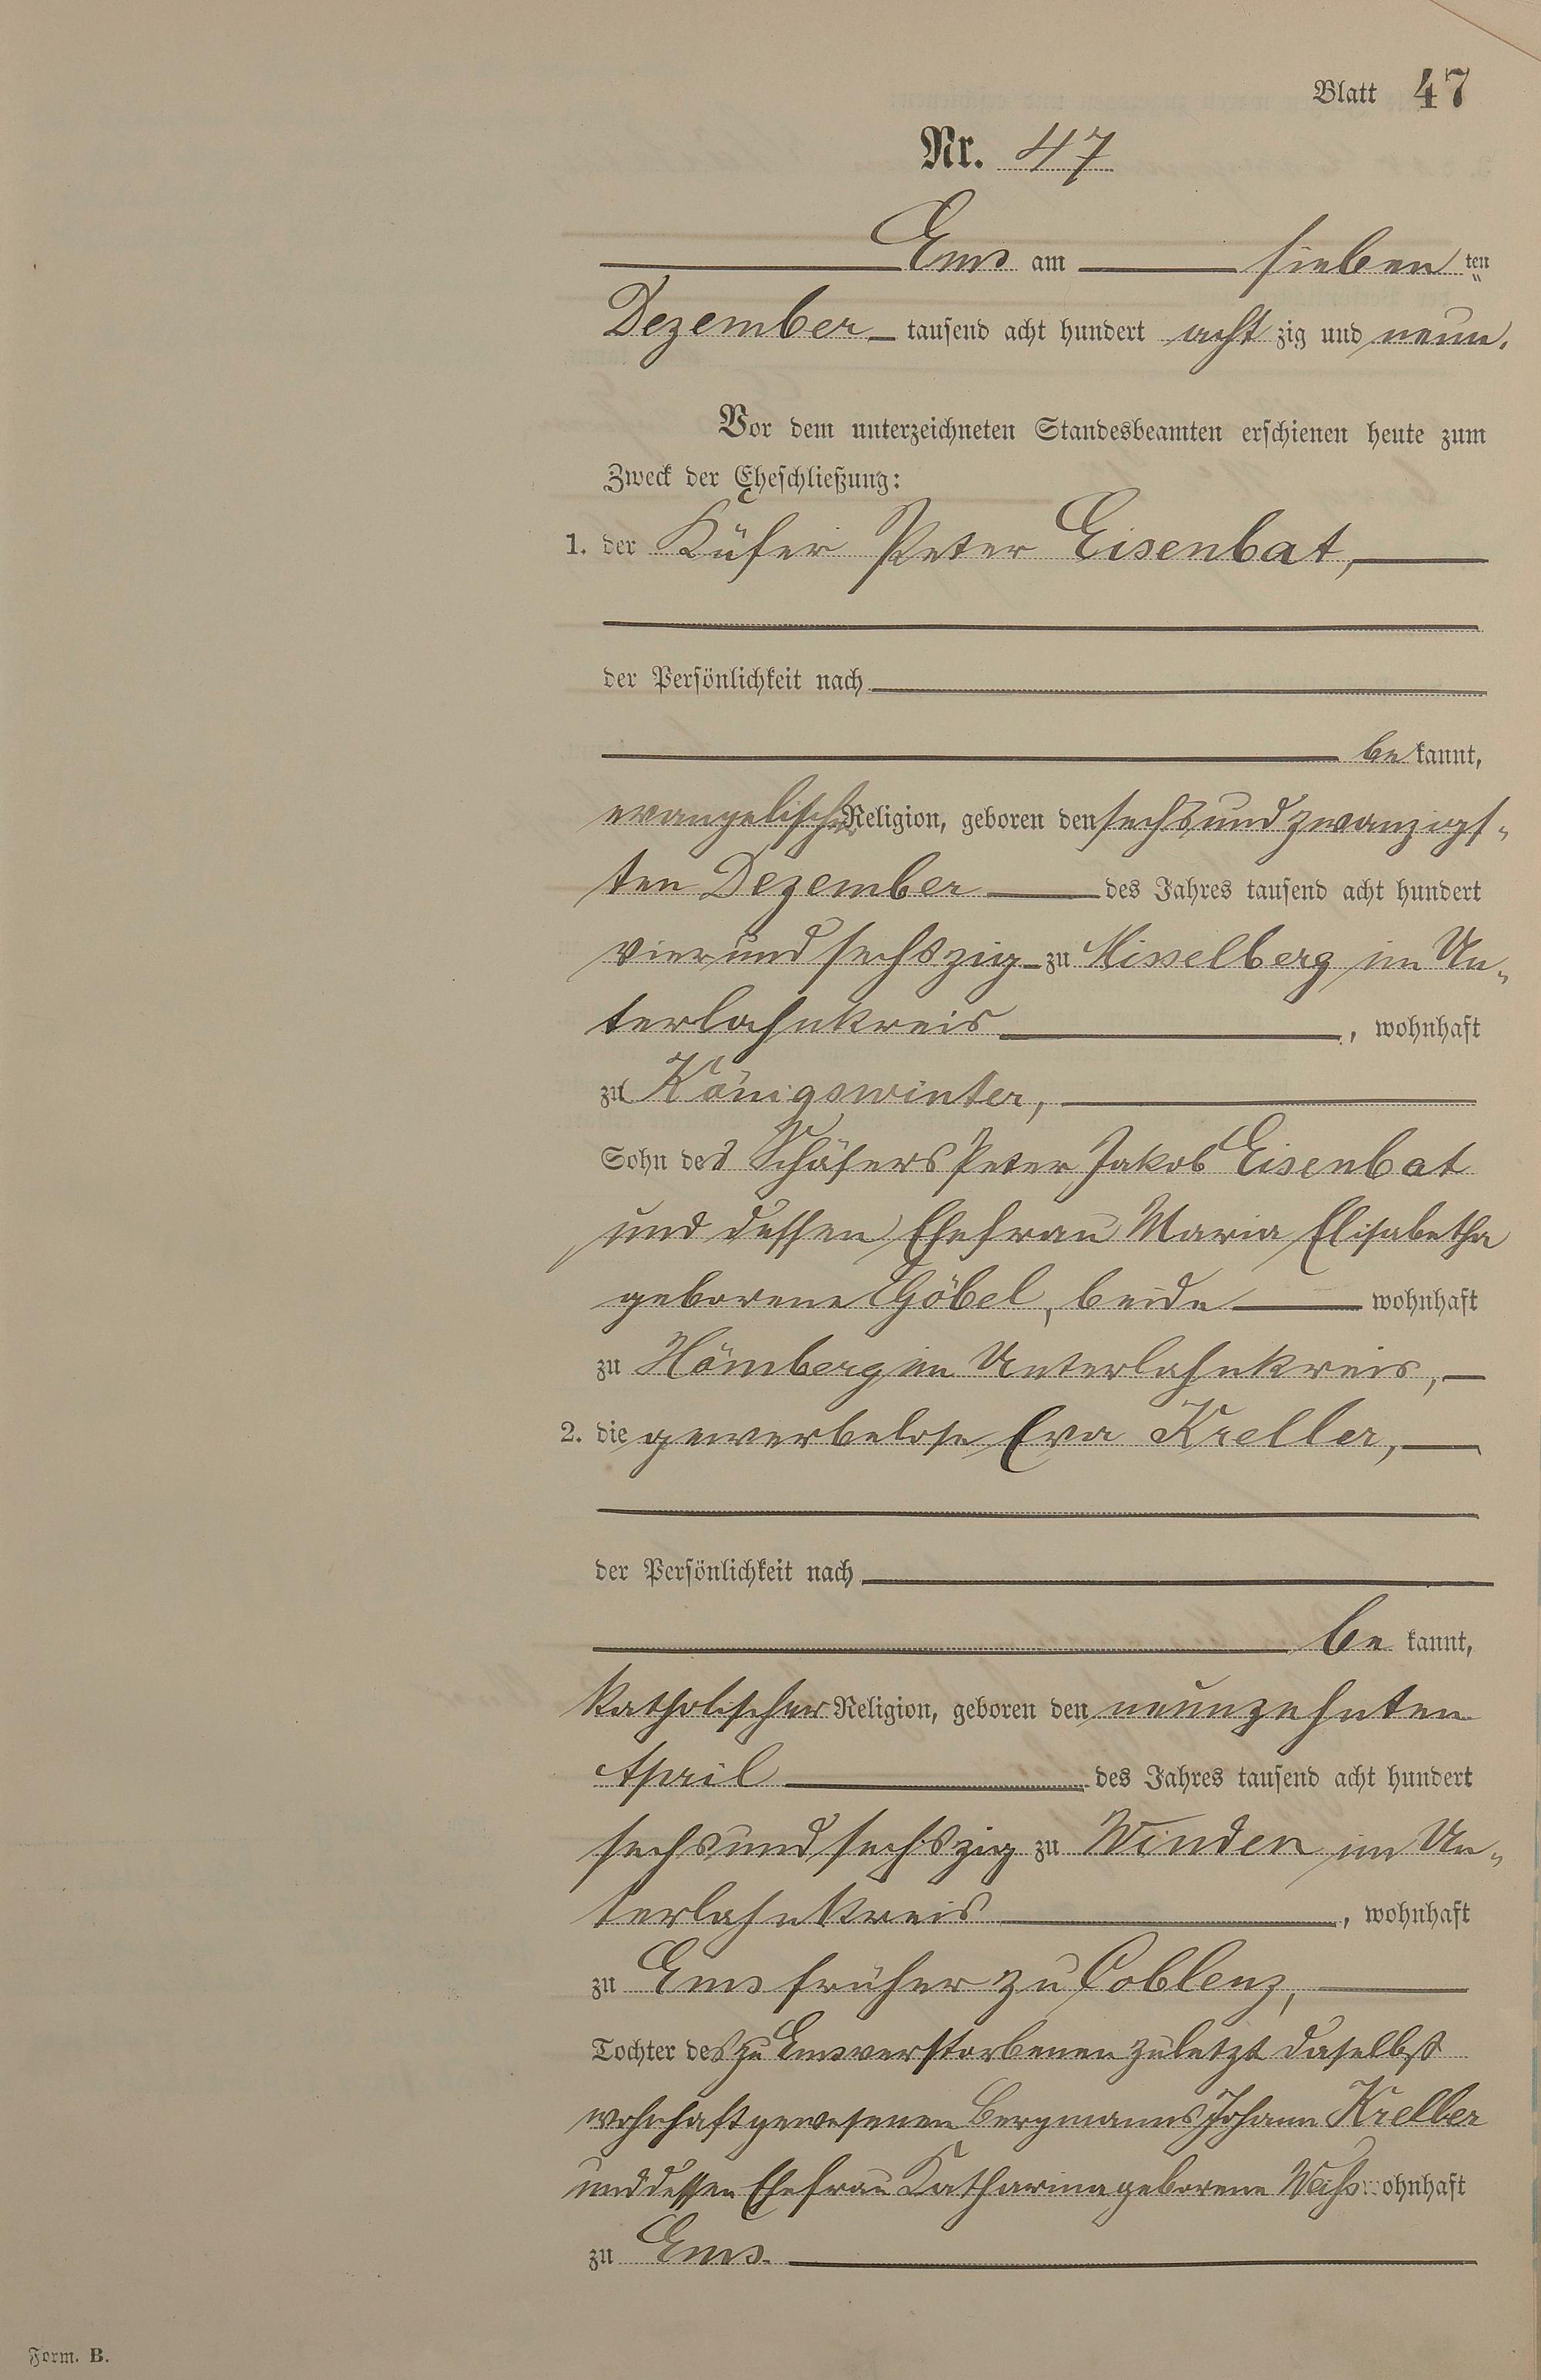 Blatt 47
Nr. 47
Ems am sieben ten
Dezember tausend acht hundert acht zig und neun.
Vor dem unterzeichneten Standesbeamten erschienen heute zum
Zweck der Eheschließung:
1. der Küfer Peter Eisenbat,
der Persönlichkeit nach
be kannt,
evangelischer Religion, geboren den sechsundzwanzigs-
ten Dezember des Jahres tausend acht hundert
vierundsechszig zu Misselberg im Un-
terlahnkreis, wohnhaft
zu Königswinter,
Sohn des Schäfers Peter Jakob Eisenbat
und dessen Ehefrau Maria Elisabetha
geborene Göbel, beide wohnhaft
zu Hömberg im Unterlahnkreis,
2. die gewerbelose Eva Kreller,
der Persönlichkeit nach
be kannt,
katholischer Religion, geboren den neunzehnten
April des Jahres tausend acht hundert
sechsundsechszig zu Winden im Un-
terlahnkreis, wohnhaft
zu Ems früher zu Coblenz,
Tochter des zu Ems verstorbenen zuletzt daselbst
wohnhaft gewesenen Bergmanns Johann Kreller
und dessen Ehefrau Katharina geborene wohnhaft
zu Ems.
Form. B.